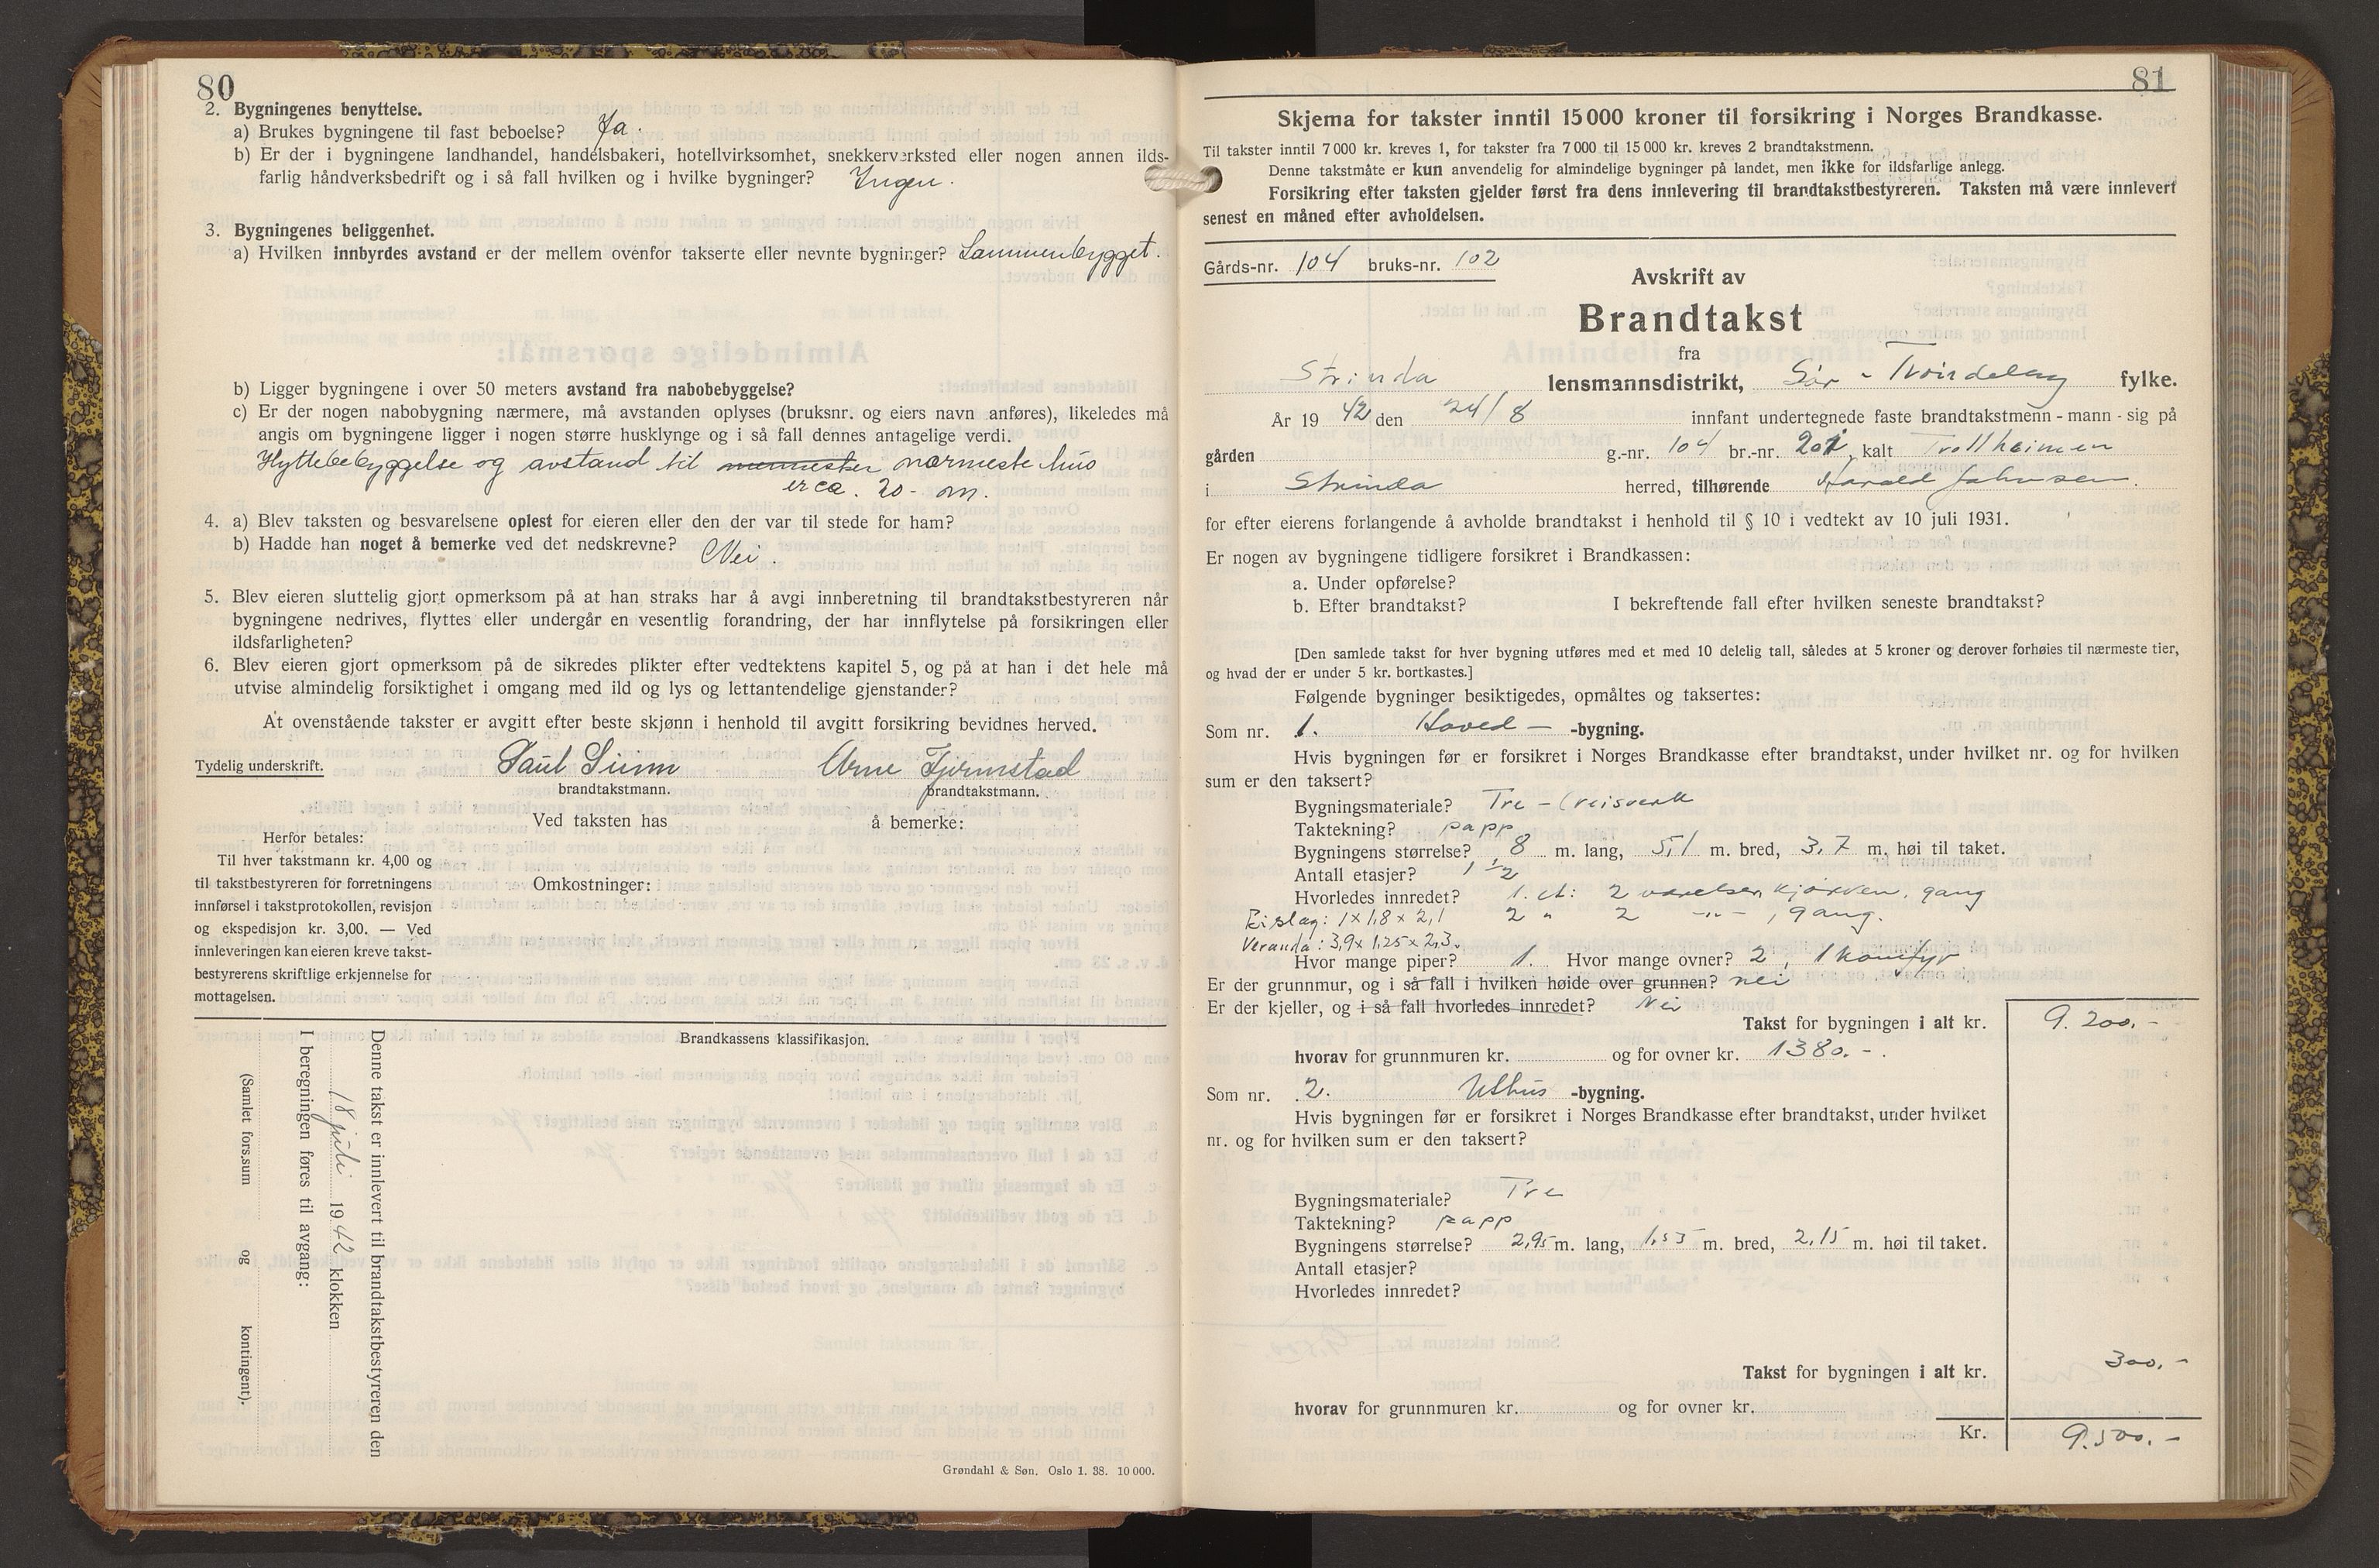 80
2. Bygningenes benyttelse.
a) Brukes bygningene til fast beboelse? Ja.
b) Er der i bygningene landhandel, handelsbakeri, hotellvirksomhet, snekkerverksted eller nogen annen ilds-
farlig håndverksbedrift og i så fall hvilken og i hvilke bygninger? Ingen.
3. Bygningenes beliggenhet.
a) Hvilken innbyrdes avstand er der mellem ovenfor takserte eller nevnte bygninger? Sammenbygget.
b) Ligger bygningene i over 50 meters avstand fra nabobebyggelse?
c) Er der nogen nabobygning nærmere, må avstanden oplyses (bruksnr. og eiers navn anføres), likeledes må
angis om bygningene ligger i nogen større husklynge og i så fall dennes antagelige verdi.
Hyttebebyggelse og avstand til nærmeste hus
er ca. 20 - m.
4. a) Blev taksten og besvarelsene oplest for eieren eller den der var til stede for ham?
b) Hadde han noget å bemerke ved det nedskrevne? Nei.
5. Blev eieren sluttelig gjort opmerksom på at han straks har å avgi innberetning til brandtakstbestyreren når
bygningene nedrives, flyttes eller undergår en vesentlig forandring, der har innflytelse på forsikringen eller
ildsfarligheten?
6. Blev eieren gjort opmerksom på de sikredes plikter efter vedtektens kapitel 5, og på at han i det hele må
utvise almindelig forsiktighet i omgang med ild og lys og lettantendelige gjenstander?
At ovenstående takster er avgitt efter beste skjønn i henhold til avgitt forsikring bevidnes herved.
Tydelig underskrift. Paul Sunn Arne Fjermstad
brandtakstmann. brandtakstmann.
Ved taksten has å bemerke:
Herfor betales:
Til hver takstmann kr. 4,00 og
til takstbestyreren for forretningens
innførsel i takstprotokollen, revisjon
og ekspedisjon kr. 3,00. — Ved
innleveringen kan eieren kreve takst-
bestyrerens skriftlige erkjennelse for
mottagelsen.
Omkostninger:
Brandkassens klassifikasjon.
Denne takst er innlevert til brandtakstbestyreren den
18 juli 1942 klokken
I beregningen føres til avgang:
(Samlet fors.sum og kontingent).
Grøndahl & Søn. Oslo 1. 38. 10 000.
81
Skjema for takster inntil 15 000 kroner til forsikring i Norges Brandkasse.
Til takster inntil 7 000 kr. kreves 1, for takster fra 7 000 til 15 000 kr. kreves 2 brandtakstmenn.
Denne takstmåte er kun anvendelig for almindelige bygninger på landet, men ikke for ildsfarlige anlegg.
Forsikring efter taksten gjelder først fra dens innlevering til brandtakstbestyreren. Taksten må være innlevert
senest en måned efter avholdelsen.
Gårds-nr. 104 bruks-nr. 102
Avskrift av
Brandtakst
fra
Strinda lensmannsdistrikt, Sør-Trøndelag fylke.
År 1942 den 24/8 innfant undertegnede faste brandtakstmenn - mann - sig på
gården g.-nr. 104 br.-nr. 201, kalt Trollheimen
i Strinda herred, tilhørende Harald Johnsen.
for efter eierens forlangende å avholde brandtakst i henhold til § 10 i vedtekt av 10 juli 1931.
Er nogen av bygningene tidligere forsikret i Brandkassen:
a. Under opførelse?
b. Efter brandtakst? I bekreftende fall efter hvilken seneste brandtakst?
[Den samlede takst for hver bygning utføres med et med 10 delelig tall, således at 5 kroner og derover forhøies til nærmeste tier,
og hvad der er under 5 kr. bortkastes.]
Følgende bygninger besiktigedes, opmåltes og taksertes:
Som nr. 1. Hoved - -bygning.
Hvis bygningen før er forsikret i Norges Brandkasse efter brandtakst, under hvilket nr. og for hvilken
sum er den taksert?
Bygningsmateriale? Tre - (reisverk
Taktekning? papp
Bygningens størrelse? 8 m. lang, 5,1 m. bred, 3,7 m. høi til taket.
Antall etasjer? 1 1/2
Hvorledes innredet? 1. et: 2 værelser, kjøkken, gang
Bislag: 1 x 1,8 x 2,1 2 " 2 -"- , gang.
Veranda: 3,9 x 1,25 x 2,3.
Hvor mange piper? 1. Hvor mange ovner? 2, 1 komfyr
Er der grunnmur, og i så fall i hvilken høide over grunnen? nei
Er der kjeller, og i så fall hvorledes innredet? Nei
Takst for bygningen i alt kr. 9.200.-
hvorav for grunnmuren kr. og for ovner kr. 1380.-.
Som nr. 2. Uthus -bygning.
Hvis bygningen før er forsikret i Norges Brandkasse efter brandtakst, under hvilket
nr. og for hvilken sum er den taksert?
Bygningsmateriale? Tre
Taktekning? papp
Bygningens størrelse? 2,95 m. lang, 1,53 m. bred, 2,15 m. høi til taket.
Antall etasjer?
Hvorledes innredet?
Takst for bygningen i alt kr. 300.-
hvorav for grunnmuren kr. og for ovner kr.
Kr. 9.500.-